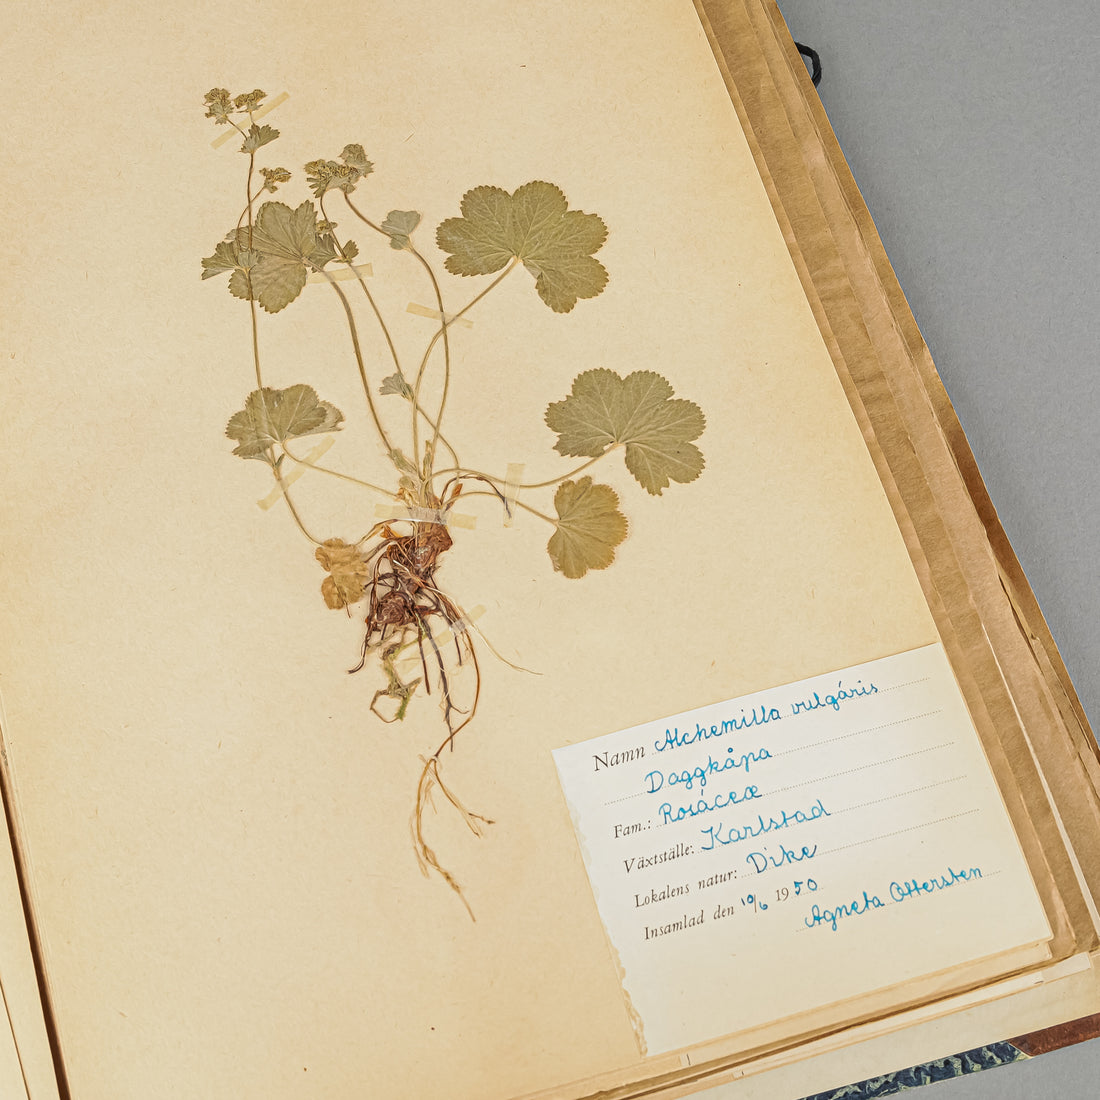 Namn Alchemilla vulgáris
Daggkåpa
Fam.: Rosáceæ
Växtställe: Karlstad
Lokalens natur: Dike
Insamlad den 10/6 1950
Agneta Ottersten